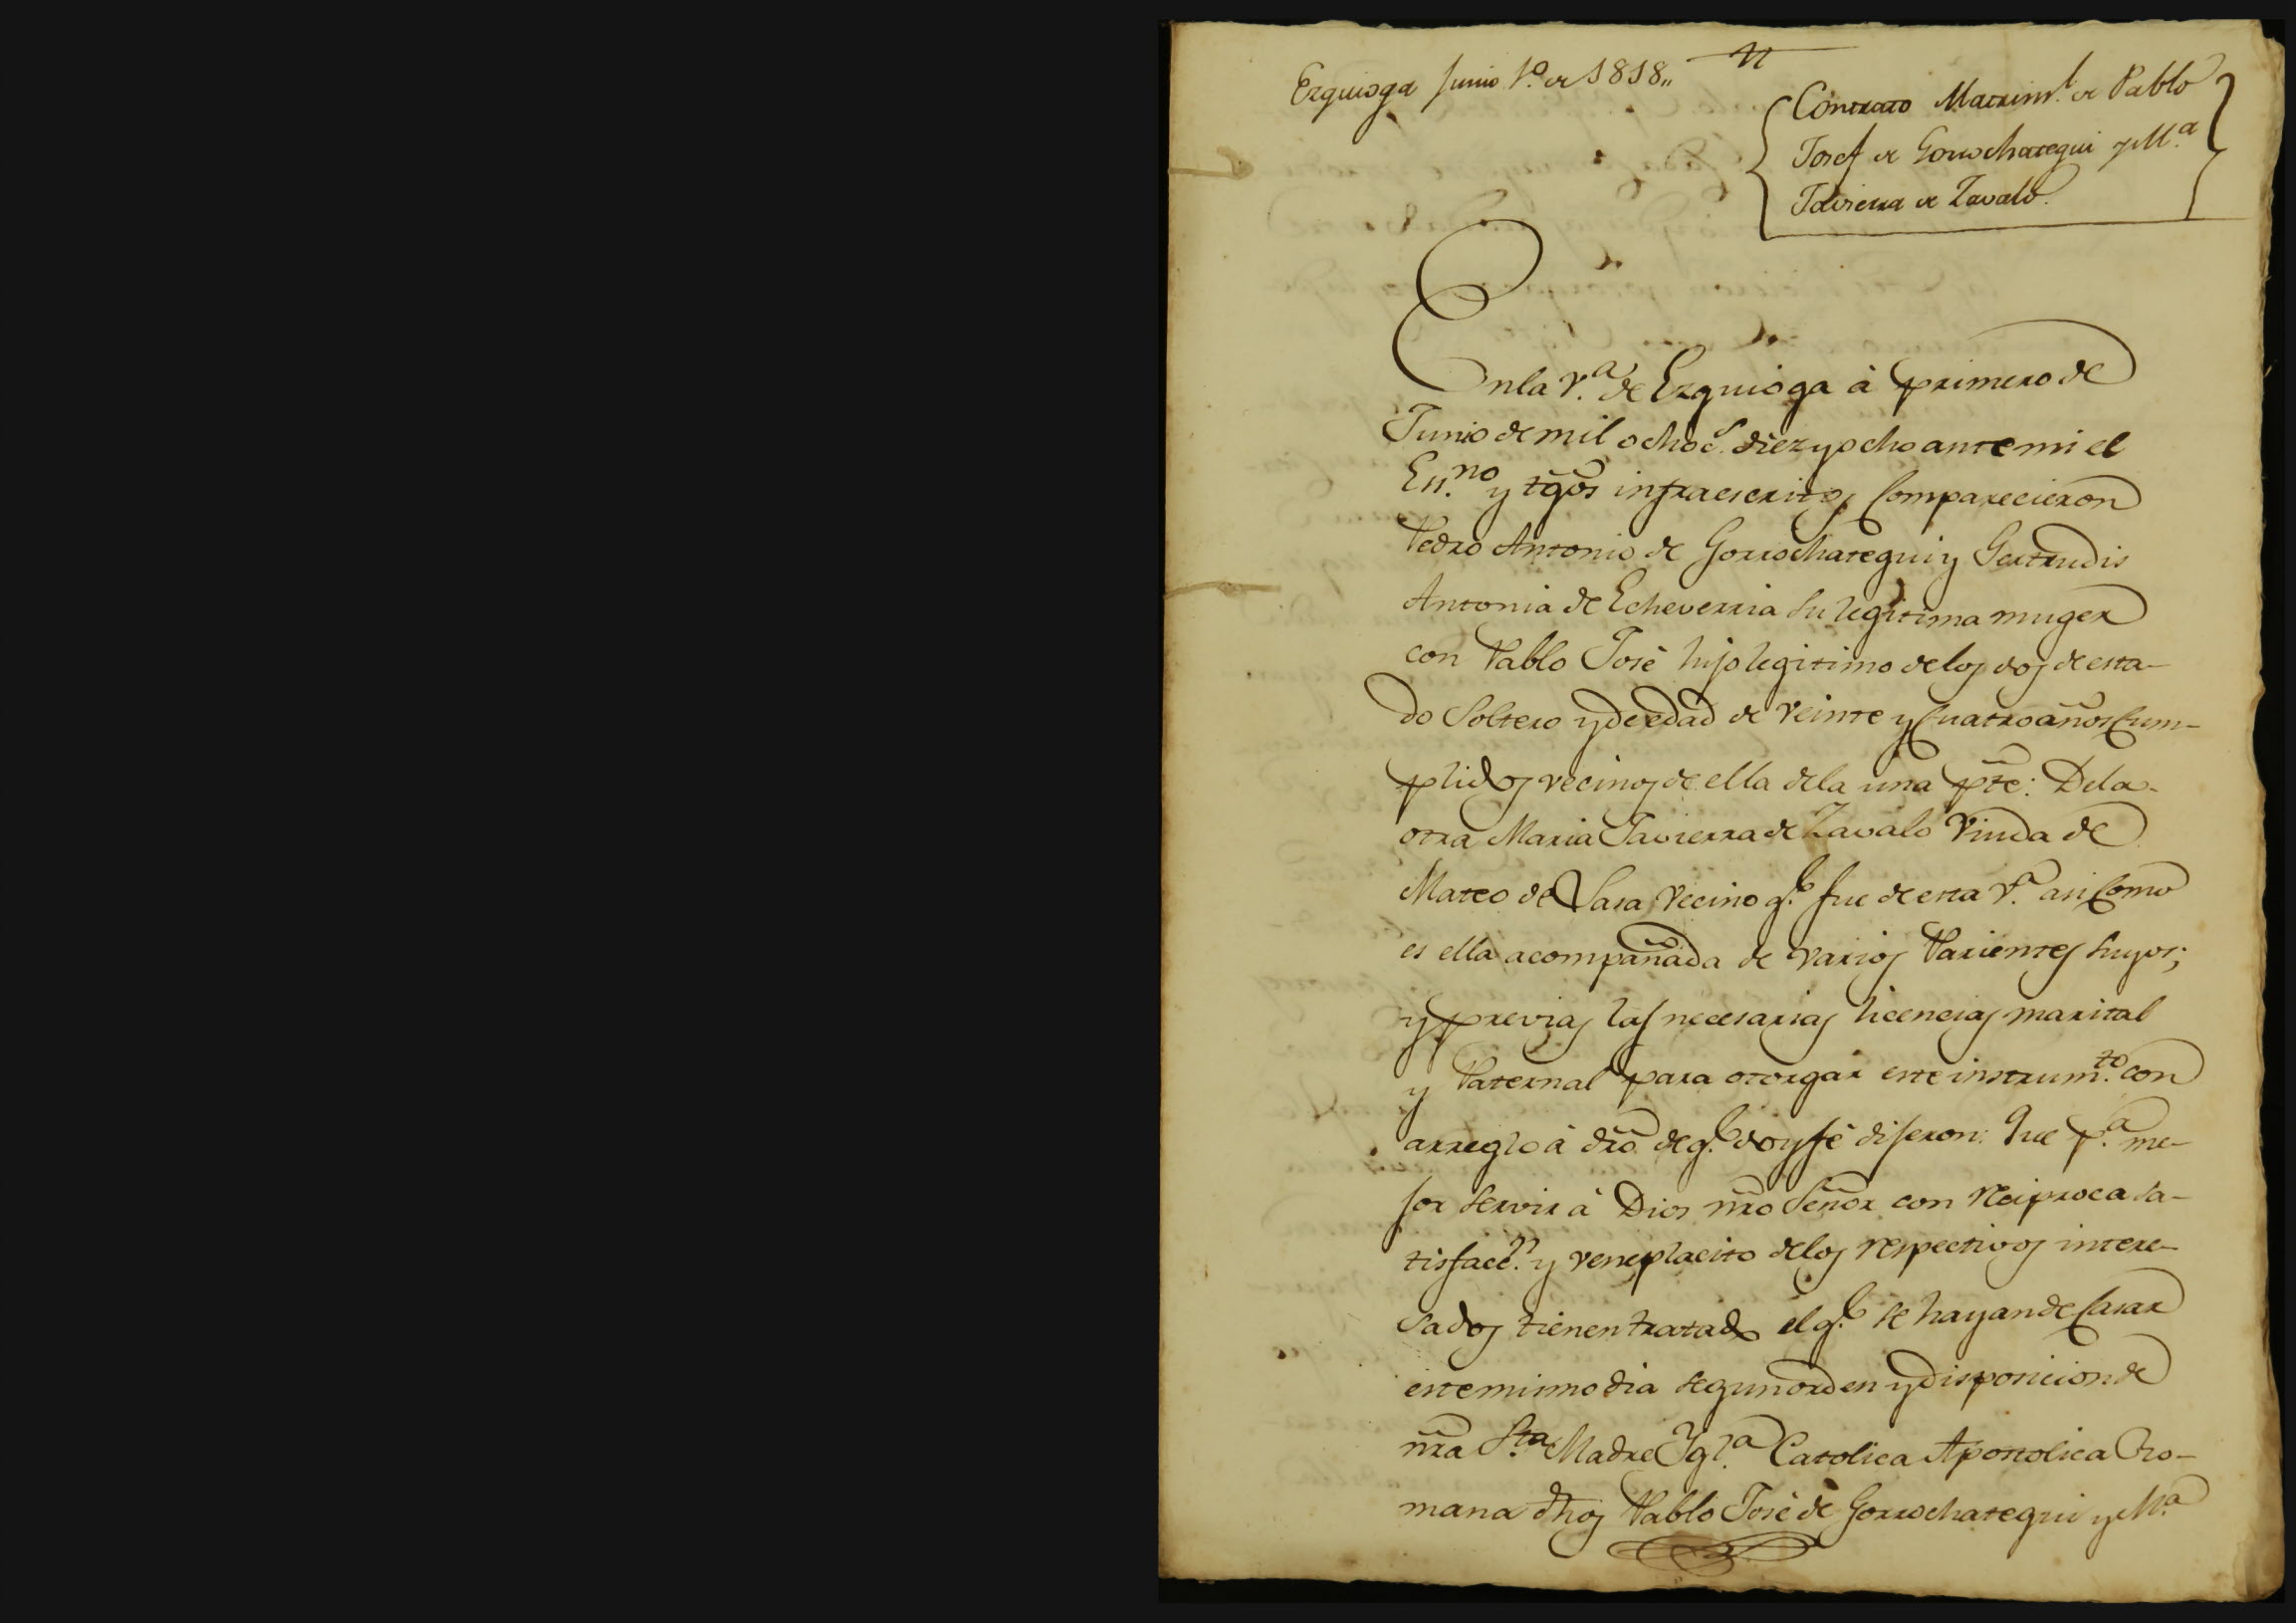 Ezquioga Junio 1º de 1818,,
Contrato Matriml. de Pablo
Josef de Gorrochategui y Mª
Javierra de Zavalo.
En la Vª. de Ezquioga à primero de
Junio de mil ochocs. diez y ocho ante mi el
Essno. y tgos infraescritos Comparecieron
Pedro Antonio de Gorrochategui y Gertrudis
Antonia de Echeverria su legitima muger
con Pablo José hijo legitimo de los dos de esta-
do Soltero y de edad de veinte y Cuatro años Cum-
plidos vecinos de ella de la una pte: De la
otra Maria Javierra de Zavalo Viuda de
Mateo de Sasa vecino qe. fue de esta Vª. asi Como
es ella acompañada de varios Parientes suyos;
y previas las necesarias licencias marital
y Paternal para otorgar este instrumto. con
arreglo à dro de qe. doy fé dijeron: Que pª. me-
jor servir à Dios nro Señor con reciproca sa-
tisfaccn. y veneplacito de los respectivos intere-
sados tienen tratado el qe. se hayan de Casar
este mismo dia segun orden y disposicion de
nra Sta. Madre Yglª. Catolica Apostolica Ro-
mana dhos Pablo José de Gorrochategui y Mª